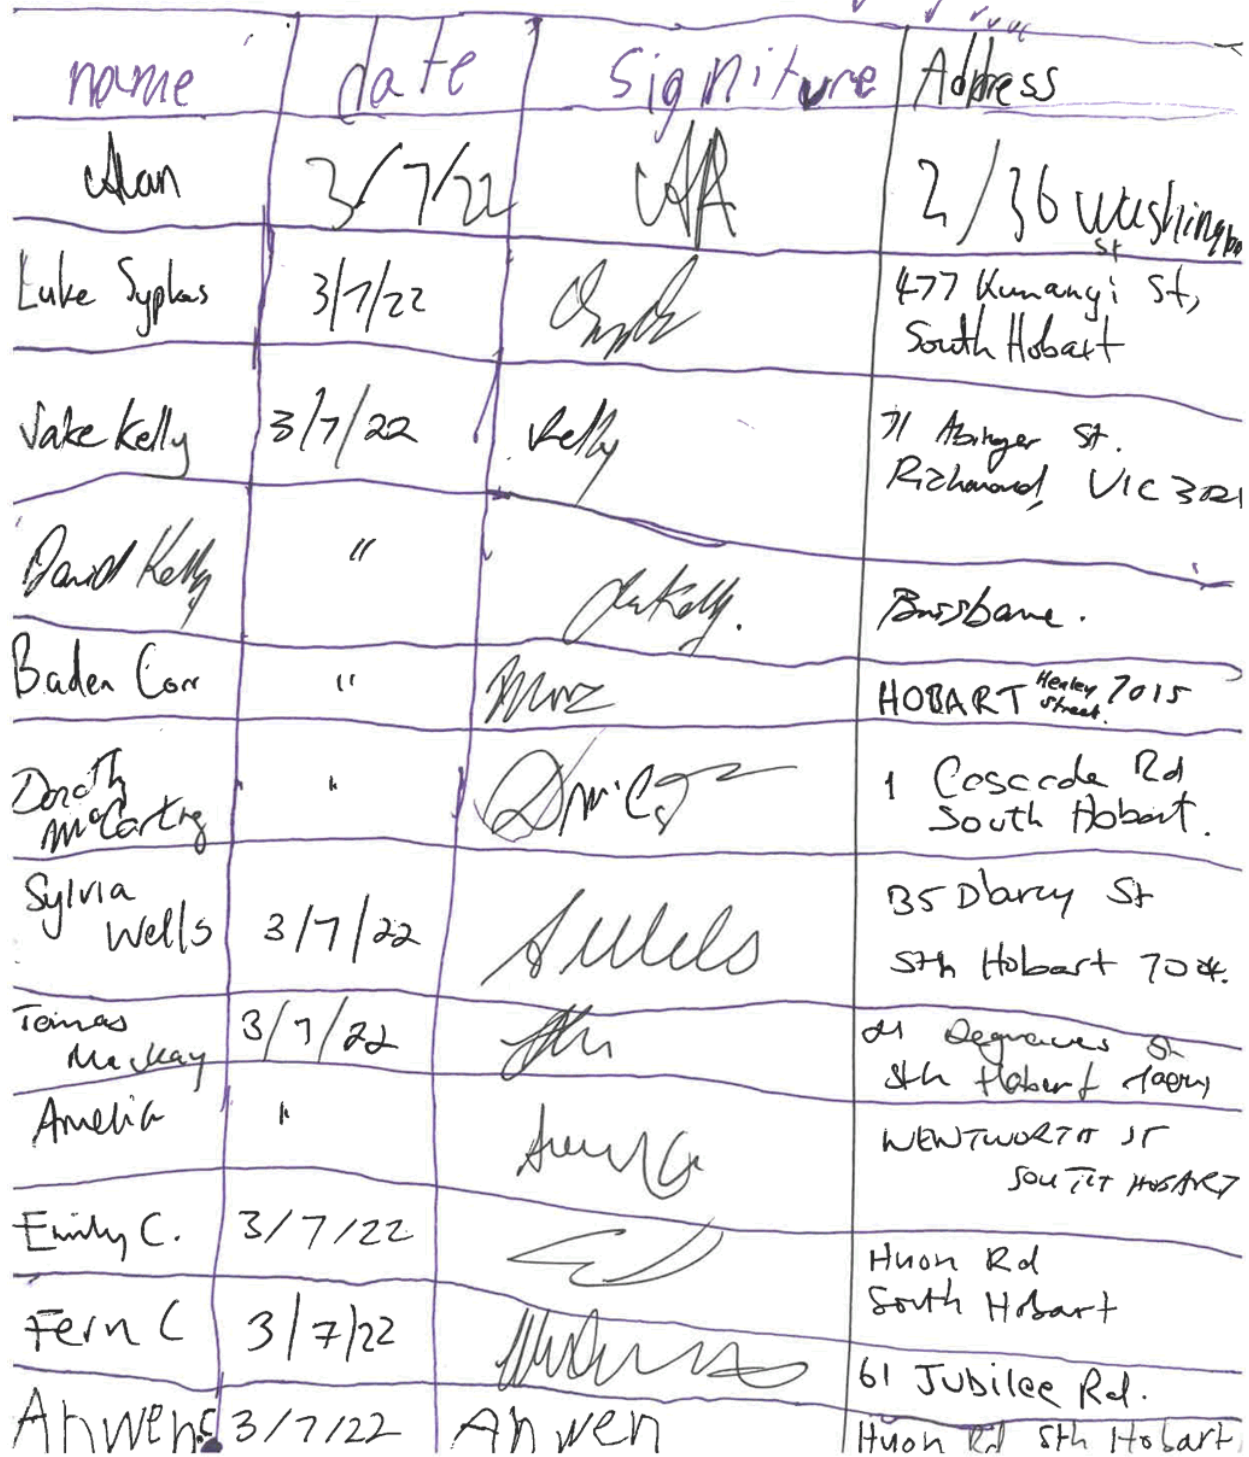 name date Signiture Address
Alan 3/7/22 2/36 Washington
St
Luke Sypkas 3/7/22 477 Kunangi St,
South Hobart
Jake Kelly 3/7/22 Kelly 71 Abinger St.
Richmond, VIC 3121
David Kelly " Kelly. Brisbane.
Baden Corr " HOBART Healey Street. 7015
Doroth " 1 Cascade Rd
McCarthy South Hobart.
Sylvia 35 D'arcy St
Wells 3/7/22 SWells Sth Hobart 7004.
Tomas 3/7/22 21 Degraves St
Mackay Sth Hobart
Amelia " WENTWORTH ST
SOUTH HOBART
Emily C. 3/7/22 Huon Rd
South Hobart
Fern C 3/7/22 61 Jubilee Rd.
Anwen C 3/7/22 Anwen Huon Rd Sth Hobart